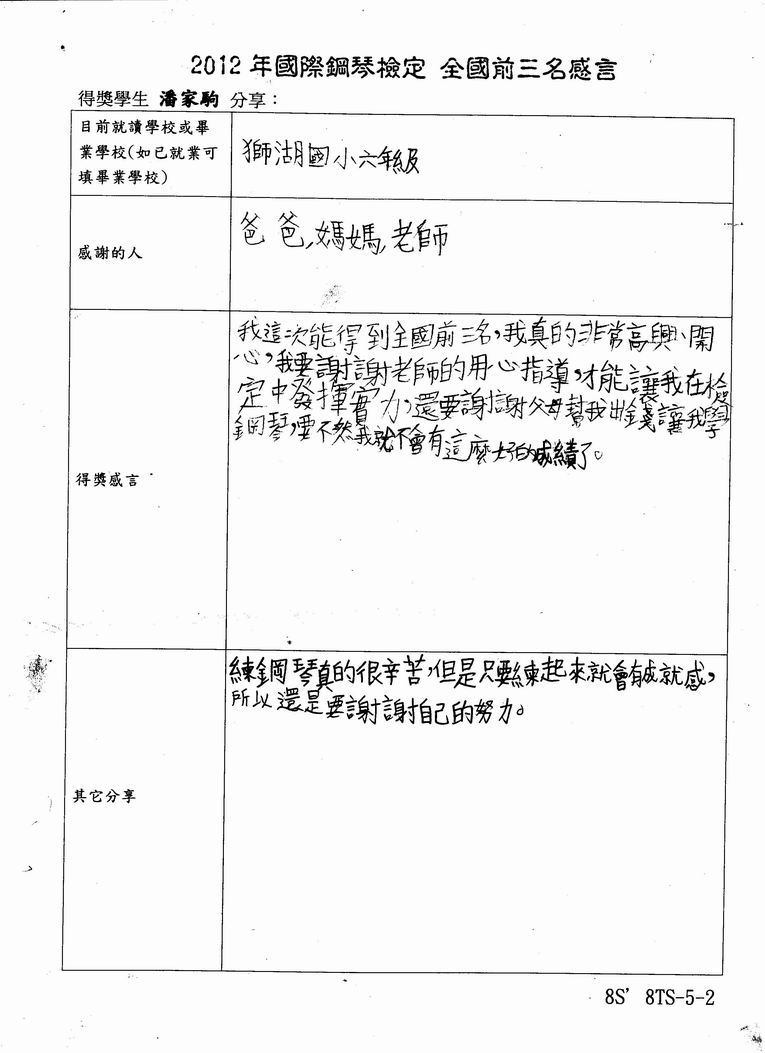 2012 年國際鋼琴檢定 全國前三名感言
得獎學生 潘家駒 分享：
目前就讀學校或畢
業學校(如已就業可
填畢業學校)
獅湖國小六年級
感謝的人
爸爸,媽媽,老師
得獎感言
我這次能得到全國前三名,我真的非常高興、開
心,我要謝謝老師的用心指導,才能讓我在檢
定中發揮實力,還要謝謝父母幫我出錢讓我學
鋼琴,要不然我就不會有這麼好的成績了。
其它分享
練鋼琴真的很辛苦,但是只要練起來就會有成就感,
所以還是要謝謝自己的努力。
8S' 8TS-5-2